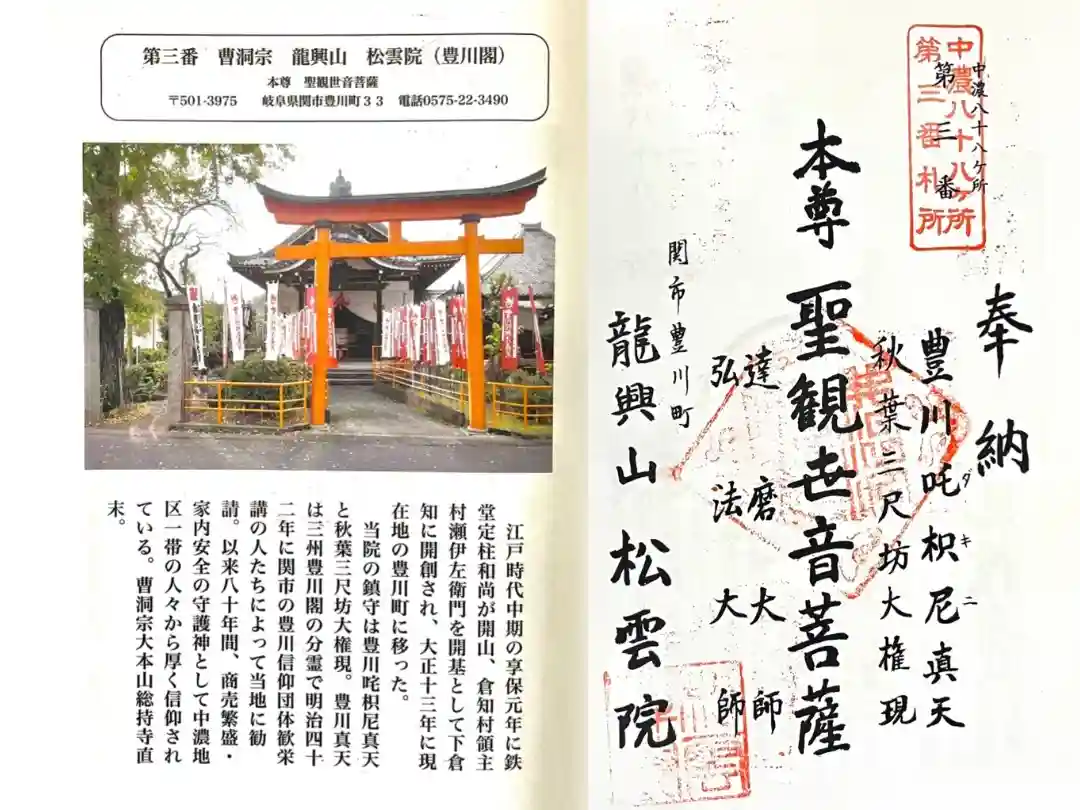 第三番　曹洞宗　龍興山　松雲院（豊川閣）
本尊　聖観世音菩薩
〒501-3975　岐阜県関市豊川町３３　電話0575-22-3490
江戸時代中期の享保元年に鉄
堂定柱和尚が開山、倉知村領主
村瀬伊左衛門を開基として下倉
知に開創され、大正十三年に現
在地の豊川町に移った。
当院の鎮守は豊川咤枳尼真天
と秋葉三尺坊大権現。豊川真天
は三州豊川閣の分霊で明治四十
二年に関市の豊川信仰団体歓栄
講の人たちによって当地に勧
請。以来八十年間、商売繁盛・
家内安全の守護神として中濃地
区一帯の人々から厚く信仰され
ている。曹洞宗大本山総持寺直
末。
中濃八十八ヶ所
第三番札所
中濃八十八ヶ所
第三番
奉納
豊川吒枳尼真天
タキニ
秋葉三尺坊大権現
本尊聖観世音菩薩
達磨大師
弘法大師
関市豊川町
龍興山松雲院